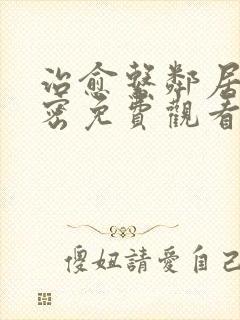 治愈繫鄰居
密免費觀看
傻妞請愛自己